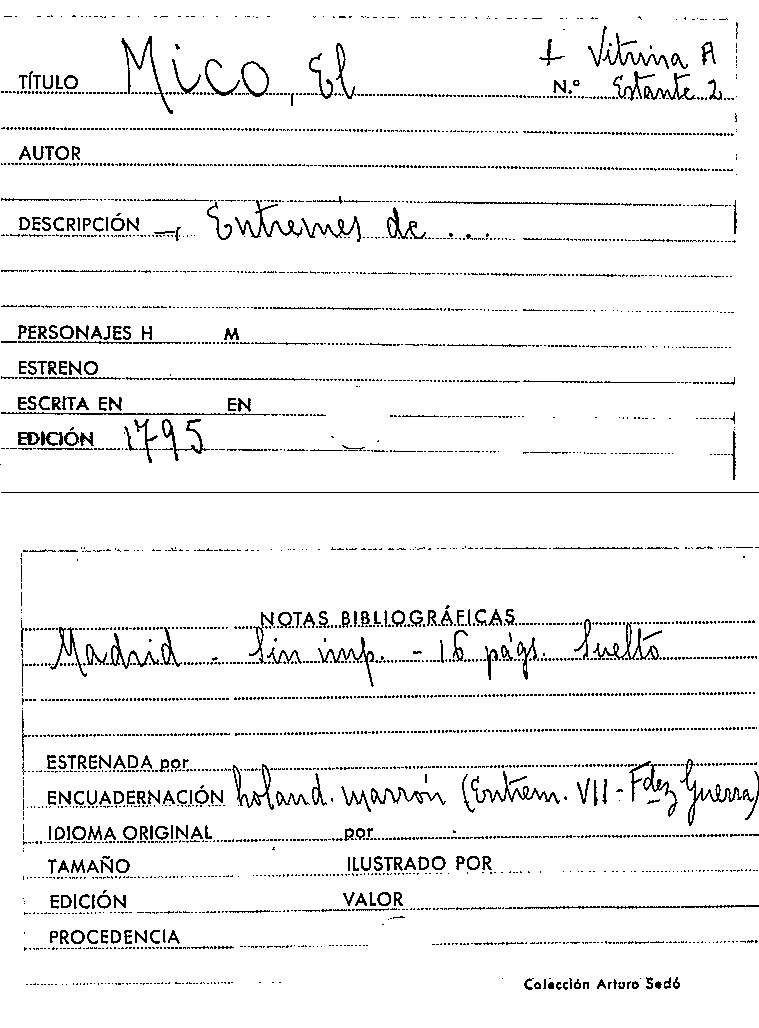 + Vitrina A
TÍTULO Mico, El N.º Estante 2
AUTOR
DESCRIPCIÓN Entremés de ...
PERSONAJES H M
ESTRENO
ESCRITA EN EN
EDICIÓN 1795
NOTAS BIBLIOGRÁFICAS
Madrid - Sin imp. - 16 págs. Suelto
ESTRENADA por
ENCUADERNACIÓN holand. marrón (Entrem. VII - Fdez Guerra)
IDIOMA ORIGINAL por
TAMAÑO ILUSTRADO POR
EDICIÓN VALOR
PROCEDENCIA
Colección Arturo Sedó